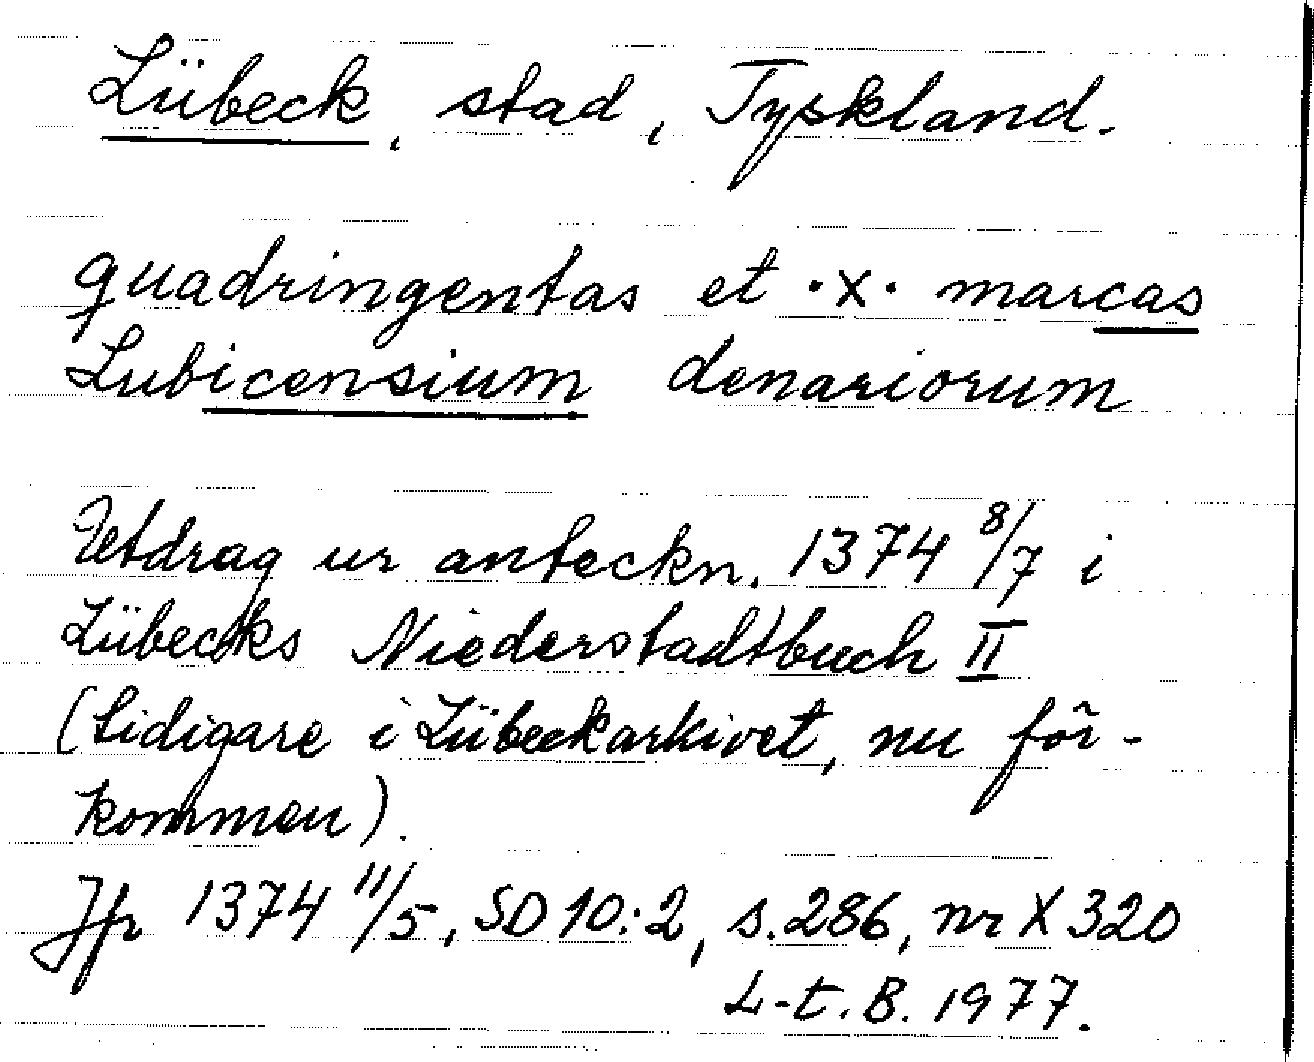 Lübeck, stad, Tyskland.
quadringentas et ·X· marcas
Lubicensium denariorum
Utdrag ur anteckn. 1374 8/7 i
Lübecks Niederstadtbuch II
(tidigare i Lübeckarkivet, nu för-
kommen).
Jfr 1374 11/5, SD 10:2, s. 286, nr X 320
L-t. B. 1977.